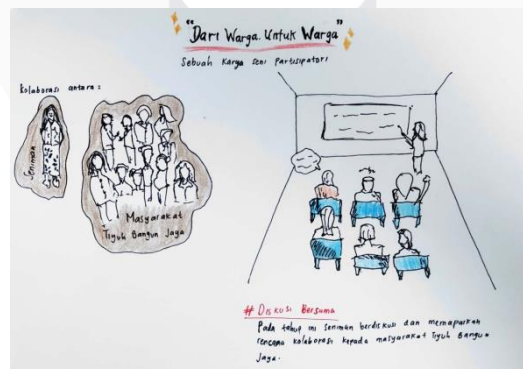 "Dari Warga. Untuk Warga"
Sebuah Karya Seni Partisipatori
Kolaborasi antara :
Seniman
Masyarakat
Tiyuh Bangun Jaya
# Diskusi Bersama
Pada tahap ini seniman berdiskusi dan memaparkan
rencana kolaborasi kepada masyarakat Tiyuh Bangun
Jaya.